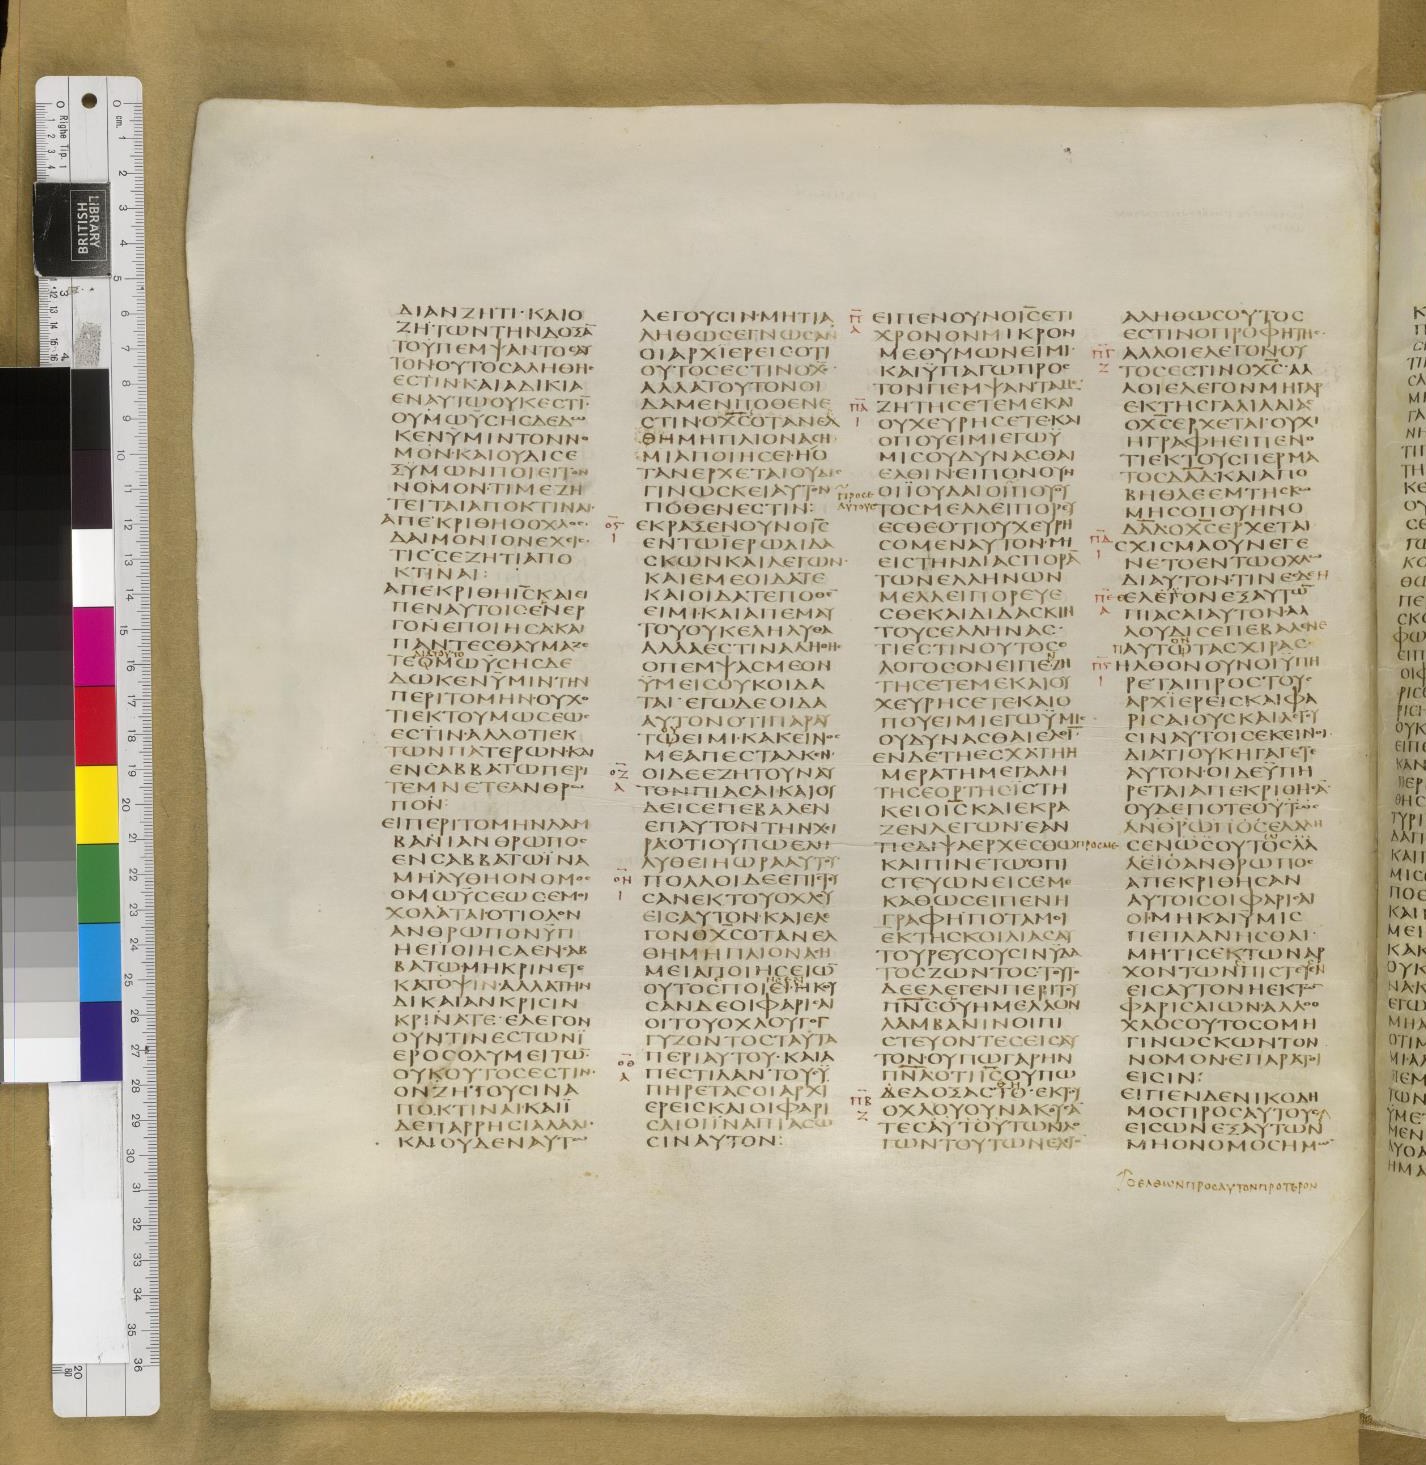 ΔΙΑΝΖΗΤΙ·ΚΑΙΟ
ΖΗΤΩΝΤΗΝΔΟΞΑ̅
ΤΟΥΠΕΜΨΑΝΤΟΣΑΥ
ΤΟΝΟΥΤΟΣΑΛΗΘΗΣ
ΕΣΤΙΝΚΑΙΑΔΙΚΙΑ
ΕΝΑΥΤΩΟΥΚΕΣΤΙ̅
ΟΥΜΩΫΣΗΣΔΕΔΩ
ΚΕΝΫΜΙΝΤΟΝΝΟ
ΜΟΝ·ΚΑΙΟΥΔΙΣΕ
ΞΥΜΩΝΠΟΙΕΙΤΟΝ
ΝΟΜΟΝ·ΤΙΜΕΖΗ
ΤΕΙΤΑΙΑΠΟΚΤΙΝΑΙ·
ΑΠΕΚΡΙΘΗΟΟΧΛΟΣ·
ΔΑΙΜΟΝΙΟΝΕΧΕΙΣ·
ΤΙΣΣΕΖΗΤΙΑΠΟ
ΚΤΙΝΑΙ:
ΑΠΕΚΡΙΘΗΙ̅Σ̅ΚΑΙΕΙ
ΠΕΝΑΥΤΟΙΣΕΝΕΡ
ΓΟΝΕΠΟΙΗΣΑΚΑΙ
ΠΑΝΤΕΣΘΑΥΜΑΖΕ
ΔΙΑΤΟΥΤΟ
ΤΕΟΜΩΫΣΗΣΔΕ
ΔΩΚΕΝΫΜΙΝΤΗΝ
ΠΕΡΙΤΟΜΗΝ·ΟΥΧΟ
ΤΙΕΚΤΟΥΜΩΣΕΩΣ
ΕΣΤΙΝ·ΑΛΛΟΤΙΕΚ
ΤΩΝΠΑΤΕΡΩΝ·ΚΑΙ
ΕΝΣΑΒΒΑΤΩΠΕΡΙ
ΤΕΜΝΕΤΕΑΝΘΡΩ
ΠΟΝ·
ΕΙΠΕΡΙΤΟΜΗΝΛΑΜ
ΒΑΝΙΑΝΘΡΩΠΟΣ
ΕΝΣΑΒΒΑΤΩΪΝΑ
ΜΗΛΥΘΗΟΝΟΜΟΣ
ΟΜΩΫΣΕΩΣΕΜΟΙ
ΧΟΛΑΤΑΙΟΤΙΟΛΟΝ
ΑΝΘΡΩΠΟΝΥΓΙ
ΗΕΠΟΙΗΣΑΕΝΣΑΒ
ΒΑΤΩΜΗΚΡΙΝΕΤΕ
ΚΑΤΟΨΙΝ·ΑΛΛΑΤΗΝ
ΔΙΚΑΙΑΝΚΡΙΣΙΝ
ΚΡΙΝΑΤΕ·ΕΛΕΓΟΝ
ΟΥΝΤΙΝΕΣΤΩΝΪ
ΕΡΟΣΟΛΥΜΕΙΤΩ̅
ΟΥΚΟΥΤΟΣΕΣΤΙΝ·
ΟΝΖΗΤΟΥΣΙΝΑ
ΠΟΚΤΙΝΑΙ·ΚΑΙΪ
ΔΕΠΑΡΡΗΣΙΑΛΑΛΙ·
ΚΑΙΟΥΔΕΝΑΥΤΩ
ΛΕΓΟΥΣΙΝ·ΜΗΤΙΑ
ΛΗΘΩΣΕΓΝΩΣΑΝ
ΟΙΑΡΧΪΕΡΕΙΣΟΤΙ
ΟΥΤΟΣΕΣΤΙΝΟΧΣ·
ΑΛΛΑΤΟΥΤΟΝΟΙ
ΔΑΜΕΝΠΟΘΕΝΕ
ΣΤΙΝ·ΟΧ̅Σ̅ΟΤΑΝΕΛ
ΘΗΜΗΠΛΙΟΝΑΣΗ
ΜΙΑΠΟΙΗΣΕΙ·ΗΟ
ΤΑΝΕΡΧΕΤΑΙΟΥΔΙΣ
ΓΙΝΩΣΚΕΙΑΥΤΟΝ
ΠΟΘΕΝΕΣΤΙΝ:
Ο̅Ϛ̅
Ι
ΕΚΡΑΞΕΝΟΥΝΟΙ̅Σ̅
ΕΝΤΩΪΕΡΩΔΙΔΑ
ΣΚΩΝΚΑΙΛΕΓΩΝ·
ΚΑΙΕΜΕΟΙΔΑΤΕ
ΚΑΙΟΙΔΑΤΕΠΟΘΕΝ
ΕΙΜΙ·ΚΑΙΑΠΕΜΑΥ
ΤΟΥΟΥΚΕΛΗΛΥΘΑ
ΑΛΛΑΕΣΤΙΝΑΛΗΘΗΣ
ΟΠΕΜΨΑΣΜΕΟΝ
ΫΜΕΙΣΟΥΚΟΙΔΑ
ΤΑΙ·ΕΓΩΔΕΟΙΔΑ
ΑΥΤΟΝΟΤΙΠΑΡΑΥ
ΟΥ
ΤΩΕΙΜΙ·ΚΑΚΕΙΝΟΣ
ΜΕΑΠΕΣΤΑΛΚΕΝ·
Ο̅Ζ̅
Α
ΟΙΔΕΕΖΗΤΟΥΝΑΥ
ΤΟΝΠΙΑΣΑΙ·ΚΑΙΟΥ
ΔΕΙΣΕΠΕΒΑΛΕΝ
ΕΠΑΥΤΟΝΤΗΝΧΙ
ΡΑΟΤΙΟΥΠΩΕΛΗ
ΛΥΘΕΙΗΩΡΑΑΥΤΟΥ
Ο̅Η̅
Ι
ΠΟΛΛΟΙΔΕΕΠΙΣΤΕΥ
ΣΑΝΕΚΤΟΥΟΧΛΟΥ
ΕΙΣΑΥΤΟΝ·ΚΑΙΕΛΕ
ΓΟΝΟΧ̅Σ̅ΟΤΑΝΕΛ
ΘΗΜΗΠΛΙΟΝΑΣΗ
ΜΕΙΑΠΟΙΗΣΕΙΩ̅
ΟΥΤΟΣΠΟΙΕΙ·ΗΚΟΥ
ΣΑΝΔΕΟΙΦΑΡΙΣΑΙ
ΟΙΤΟΥΟΧΛΟΥΓΟΓ
ΓΥΖΟΝΤΟΣΤΑΥΤΑ
Ο̅Θ̅
Α
ΠΕΡΙΑΥΤΟΥ·ΚΑΙΑ
ΠΕΣΤΙΛΑΝΤΟΥΣΫ
ΠΗΡΕΤΑΣΟΙΑΡΧΙ
ΕΡΕΙΣΚΑΙΟΙΦΑΡΙ
ΣΑΙΟΙΪΝΑΠΙΑΣΩ
ΣΙΝΑΥΤΟΝ:
Π̅
Α
ΕΙΠΕΝΟΥΝΟΙ̅Σ̅ΕΤΙ
ΧΡΟΝΟΝΜΙΚΡΟΝ
ΜΕΘΥΜΩΝΕΙΜΙ·
ΚΑΙΫΠΑΓΩΠΡΟΣ
ΤΟΝΠΕΜΨΑΝΤΑΜΕ·
Π̅Α̅
Ι
ΖΗΤΗΣΕΤΕΜΕΚΑΙ
ΟΥΧΕΥΡΗΣΕΤΕ·ΚΑΙ
ΟΠΟΥΕΙΜΙΕΓΩΫ
ΜΙΣΟΥΔΥΝΑΣΘΑΙ
ΕΛΘΙΝ·ΕΙΠΟΝΟΥΝ
ΠΡΟΣΕ
ΑΥΤΟΥΣ
ΟΙΪΟΥΔΑΙΟΙΠΟΥΟΥ
ΤΟΣΜΕΛΛΕΙΠΟΡΕΥ
ΕΣΘΕΟΤΙΟΥΧΕΥΡΗ
ΣΟΜΕΝΑΥΤΟΝ·ΜΗ
ΕΙΣΤΗΝΔΙΑΣΠΟΡΑ̅
ΤΩΝΕΛΛΗΝΩΝ
ΜΕΛΛΕΙΠΟΡΕΥΕ
ΣΘΕΚΑΙΔΙΔΑΣΚΙΝ
ΤΟΥΣΕΛΛΗΝΑΣ·
ΤΙΕΣΤΙΝΟΥΤΟΣΟ
ΛΟΓΟΣΟΝΕΙΠΕΖΗ
ΤΗΣΕΤΕΜΕΚΑΙΟΥ
ΧΕΥΡΗΣΕΤΕΚΑΙΟ
ΠΟΥΕΙΜΙΕΓΩΫΜΙΣ
ΟΥΔΥΝΑΣΘΑΙΕΛΘΙ̅
ΕΝΔΕΤΗΕΣΧΑΤΗΗ
ΜΕΡΑΤΗΜΕΓΑΛΗ
ΤΗΣΕΟΡΤΗΣΙΣΤΗ
ΚΕΙΟΙ̅Σ̅ΚΑΙΕΚΡΑ
ΖΕΝΛΕΓΩΝ·ΕΑΝ
ΤΙΣΔΙΨΑΕΡΧΕΣΘΩ ΠΡΟΣΜΕ
ΚΑΙΠΙΝΕΤΩΟΠΙ
ΣΤΕΥΩΝΕΙΣΕΜΕ
ΚΑΘΩΣΕΙΠΕΝΗ
ΓΡΑΦΗΠΟΤΑΜΟΙ
ΕΚΤΗΣΚΟΙΛΙΑΣΑΥ
ΤΟΥΡΕΥΣΟΥΣΙΝΫΔΑ
ΤΟΣΖΩΝΤΟΣ·ΤΟΥΤΟ
ΔΕΕΛΕΓΕΝΠΕΡΙΤΟΥ
Π̅Ν̅Σ̅ΟΥΗΜΕΛΛΟΝ
ΛΑΜΒΑΝΙΝΟΙΠΙ
ΣΤΕΥΟΝΤΕΣΕΙΣΑΥ
ΤΟΝ·ΟΥΠΩΓΑΡΗΝ
Π̅Ν̅Α̅ΟΤΙΙ̅Σ̅ΟΥΠΩ
ΔΕΔΟΞΑΣΤΟ·ΕΚΤΟΥ
Π̅Β̅
Ζ
ΟΧΛΟΥΟΥΝΑΚΟΥΣΑ̅
ΤΕΣΑΥΤΟΥΤΩΝΛΟ
ΓΩΝΤΟΥΤΩΝΕΛΕΓΟ̅
ΑΛΗΘΩΣΟΥΤΟΣ
ΕΣΤΙΝΟΠΡΟΦΗΤΗΣ·
Π̅Γ̅
Ζ
ΑΛΛΟΙΕΛΕΓΟΝΟΥ
ΤΟΣΕΣΤΙΝΟΧ̅Σ̅·ΑΛ
ΛΟΙΕΛΕΓΟΝΜΗΓΑΡ
ΕΚΤΗΣΓΑΛΙΛΑΙΑΣ
ΟΧ̅Σ̅ΕΡΧΕΤΑΙ·ΟΥΧΙ
ΗΓΡΑΦΗΕΙΠΕΝΟ
ΤΙΕΚΤΟΥΣΠΕΡΜΑ
ΤΟΣΔ̅Α̅Δ̅ΚΑΙΑΠΟ
ΒΗΘΛΕΕΜΤΗΣΚΩ
ΜΗΣΟΠΟΥΗΝΟ
Δ̅Α̅Δ̅ΟΧ̅Σ̅ΕΡΧΕΤΑΙ
Π̅Δ̅
Ι
ΣΧΙΣΜΑΟΥΝΕΓΕ
ΝΕΤΟΕΝΤΩΟΧΛΩ
ΔΙΑΥΤΟΝ·ΤΙΝΕΣΔΕΗ
Π̅Ε̅
Α
ΘΕΛΕΓΟΝΕΞΑΥΤΩ̅
ΠΙΑΣΑΙΑΥΤΟΝ·ΑΛ
ΛΟΥΔΙΣΕΠΕΒΑΛΕΝΕ
ΠΑΥΤΩΤΑΣΧΙΡΑΣ·
Π̅Ϛ̅
Ι
ΗΛΘΟΝΟΥΝΟΙΫΠΗ
ΡΕΤΑΙΠΡΟΣΤΟΥΣ
ΑΡΧΪΕΡΕΙΣΚΑΙΦΑ
ΡΙΣΑΙΟΥΣΚΑΙΛΕΓΟΥ
ΣΙΝΑΥΤΟΙΣΕΚΕΙΝΟΙ
ΔΙΑΤΙΟΥΚΗΓΑΓΕΤΕ
ΑΥΤΟΝ·ΟΙΔΕΫΠΗ
ΡΕΤΑΙΑΠΕΚΡΙΘΗΣΑ̅
ΟΥΔΕΠΟΤΕΟΥΤΩΣ
ΑΝΘΡΩΠΟΣΕΛΑΛΗ
ΣΕΝΩΣΟΥΤΟΣΛΑ
ΛΕΙΟΑΝΘΡΩΠΟΣ
ΑΠΕΚΡΙΘΗΣΑΝ
ΑΥΤΟΙΣΟΙΦΑΡΙΣΑΙ
ΟΙ·ΜΗΚΑΙΫΜΙΣ
ΠΕΠΛΑΝΗΣΘΑΙ·
ΜΗΤΙΣΕΚΤΩΝΑΡ
ΧΟΝΤΩΝΠΙΣΤΕΥΕΙ
ΕΙΣΑΥΤΟΝΗΕΚΤΩ̅
ΦΑΡΙΣΑΙΩΝ·ΑΛΛΟΟ
ΧΛΟΣΟΥΤΟΣΟΜΗ
ΓΙΝΩΣΚΩΝΤΟΝ
ΝΟΜΟΝ·ΕΠΑΡΑΤΟΙ
ΕΙΣΙΝ:
ΕΙΠΕΝΔΕΝΙΚΟΔΗ
ΜΟΣΠΡΟΣΑΥΤΟΥΣ
ΕΙΣΩΝΕΞΑΥΤΩΝ
ΜΗΟΝΟΜΟΣΗΜΩ̅
ΟΕΛΘΩΝΠΡΟΣΑΥΤΟΝΠΡΟΤΕΡΟΝ
LIBRARY
BRITISH